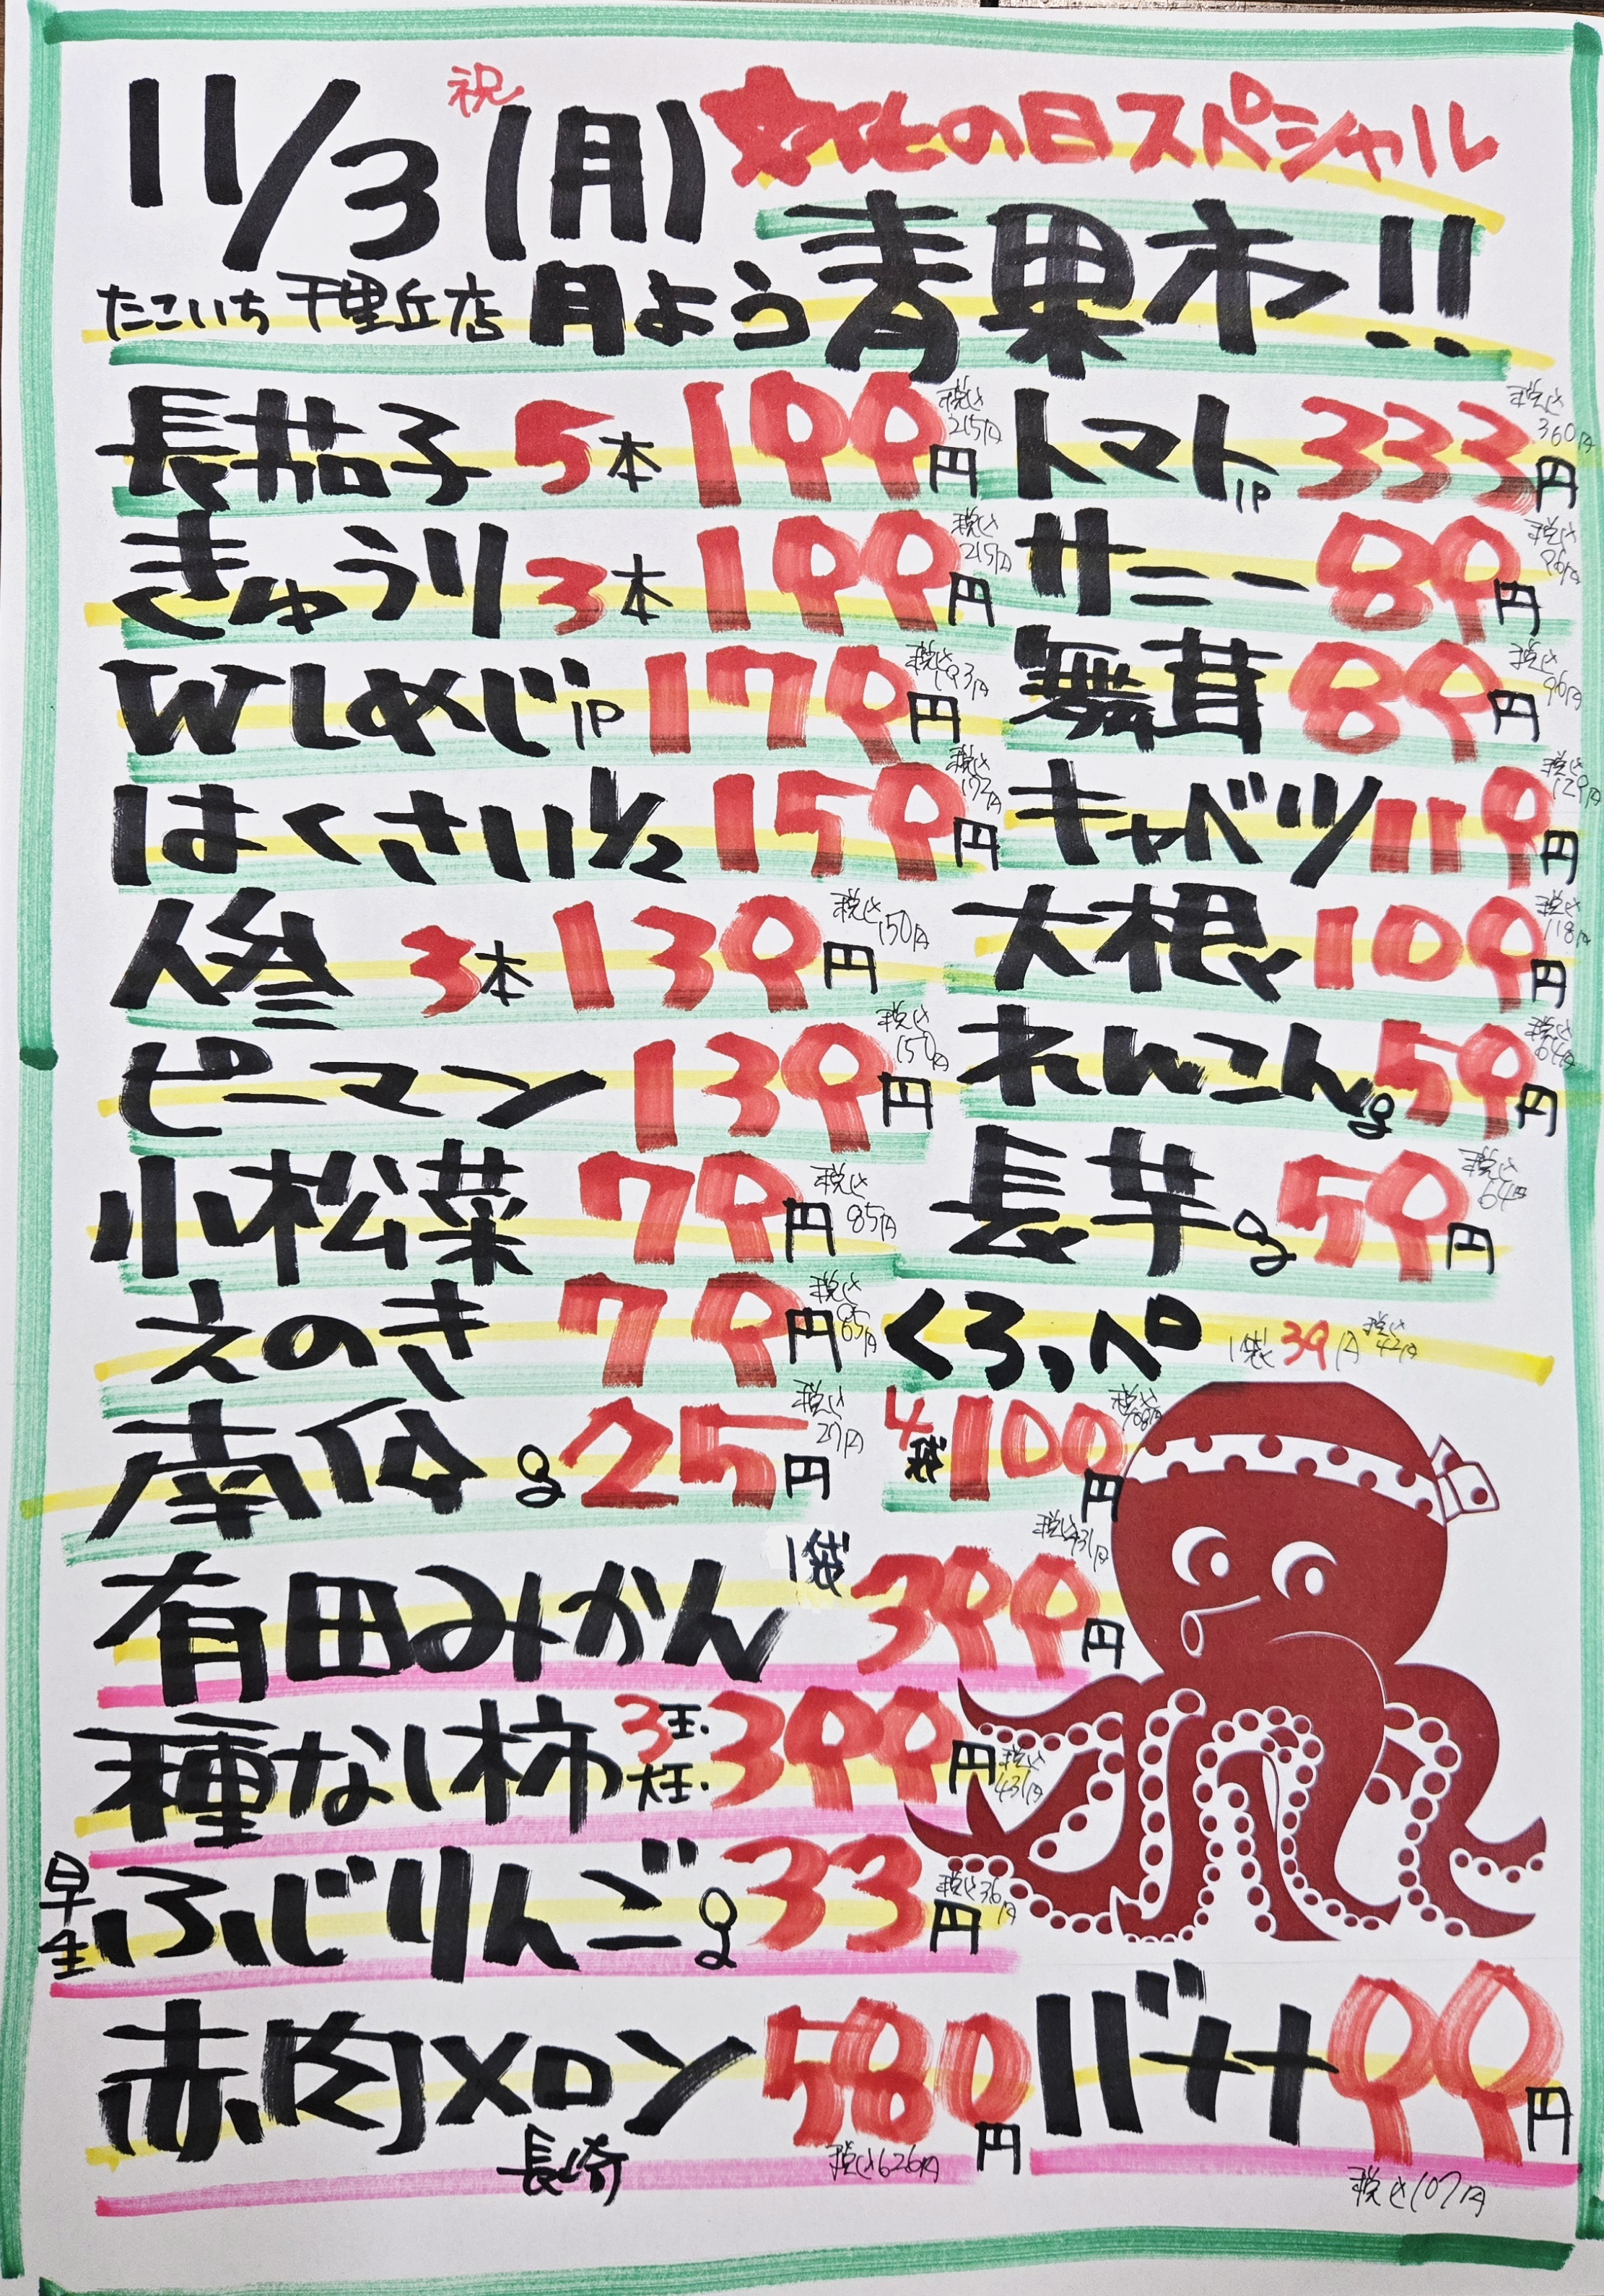 11/3(月)
祝
文化の日スペシャル
たこいち 千里丘店 月よう青果市!!
長茄子 5本 199円 税込215円
トマト1P 333円 税込360円
きゅうり 3本 199円 税込215円
サニー 89円 税込96円
Wしめじ1P 179円 税込193円
舞茸 89円 税込96円
はくさい1/2 159円 税込172円
キャベツ 119円 税込129円
人参 3本 139円 税込150円
大根 109円 税込118円
ピーマン 139円 税込150円
れんこんg 59円 税込64円
小松菜 79円 税込85円
長芋g 59円 税込64円
えのき 79円 税込85円
くろっぺ 1袋39円 税込42円
南瓜 g25円 税込27円
4袋100円 税込108円
有田みかん 1袋 399円 税込431円
種なし柿 3玉 大玉 399円 税込431円
早生ふじりんごg 33円 税込36円
赤肉メロン 580円 税込626円
長崎
バナナ 99円
税込107円